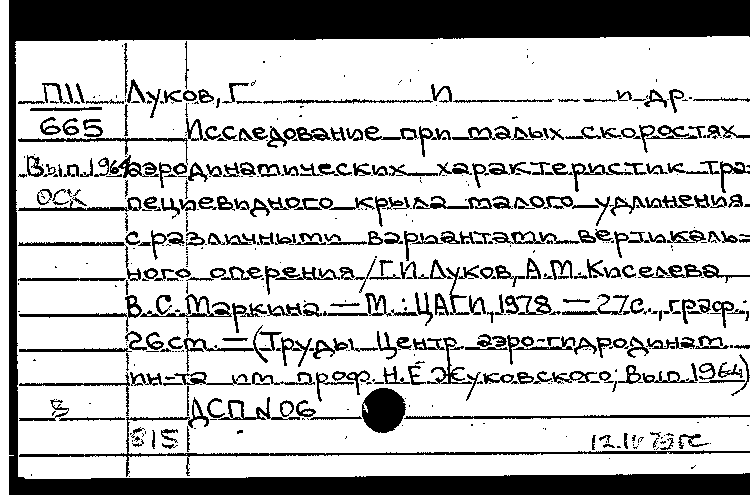 П11 Луков, Г И и др.
665 Исследование при малых скоростях
Вып.1964 аэродинатических характеристик тра-
ОСХ пециевидного крыла малого удлинения
с различными вариантами вертикаль-
ного оперения / Г.И. Луков, А.М. Киселева,
В.С. Маркина. — М.: ЦАГИ, 1978 — 27с., граф.;
26см. — (Труды Центр аэро-гидродинам
ин-та им проф. Н.Е Жуковского; Вып. 1964)
ДСП N 06
815